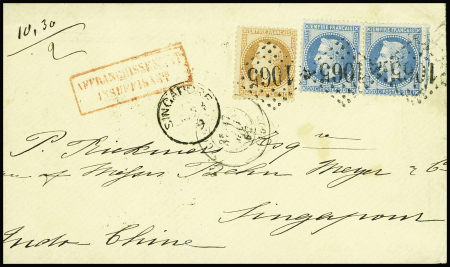 10,30
2
AFFRANCHISSEMENT
INSUFFISANT
EMPIRE FRANÇAIS
EMPIRE FRANÇAIS
EMPIRE FRANÇAIS
1065
1065
SINGAPORE
P. Rickmers Esqre
of Messrs Behn Meyer & C
Singapour
Indo Chine